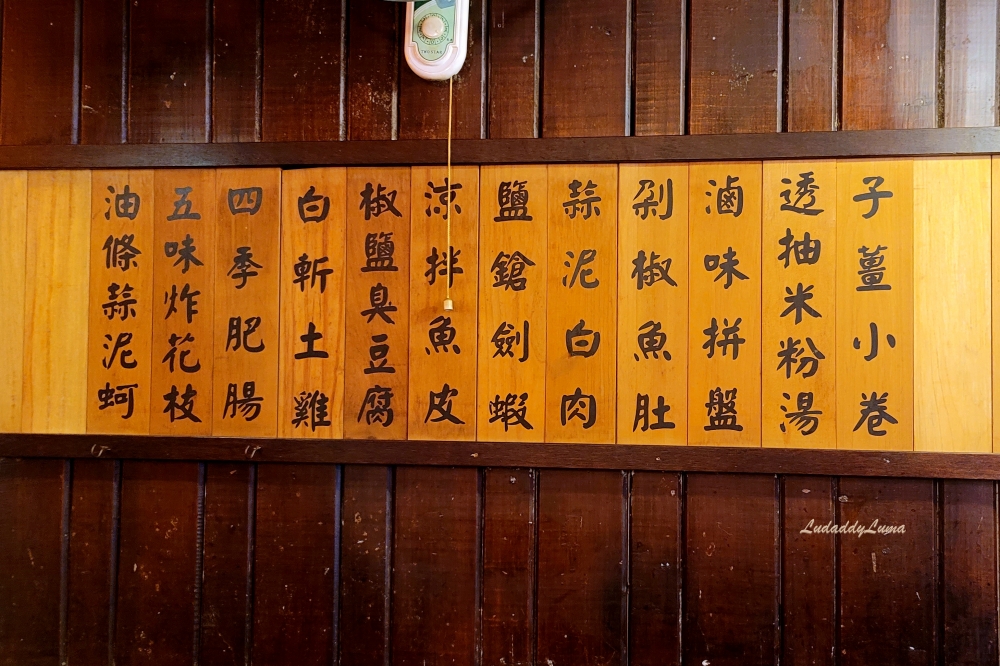 子薑小卷
透抽米粉湯
滷味拼盤
剁椒魚肚
蒜泥白肉
鹽鎗劍蝦
涼拌魚皮
椒鹽臭豆腐
白斬土雞
四季肥腸
五味炸花枝
油條蒜泥蚵
LudaddyLuma